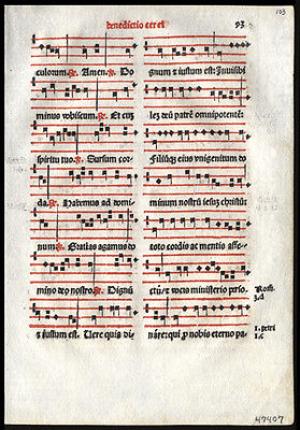 benedictio cerei
93
103
culorum. ℟. Amen. ℟. Do
minus vobiscum. ℟. Et cũ
spiritu tuo. ℟. Sursum cor
da. ℟. Habemus ad domi
num. ℟. Gratias agamus do
mino deo nostro. ℟. Dignũ
et iustum est. Uere quia di
gnum et iustum est: Inuisibi
lez deũ patrẽ omnipotentẽ:
Filiũqz eius vnigenitum do
minum nostrũ iesuz christũ:
toto cordis ac mentis affe
ctu: et vocis ministerio perso
nare: qui pro nobis eterno pa
1. petri
1. c
47407